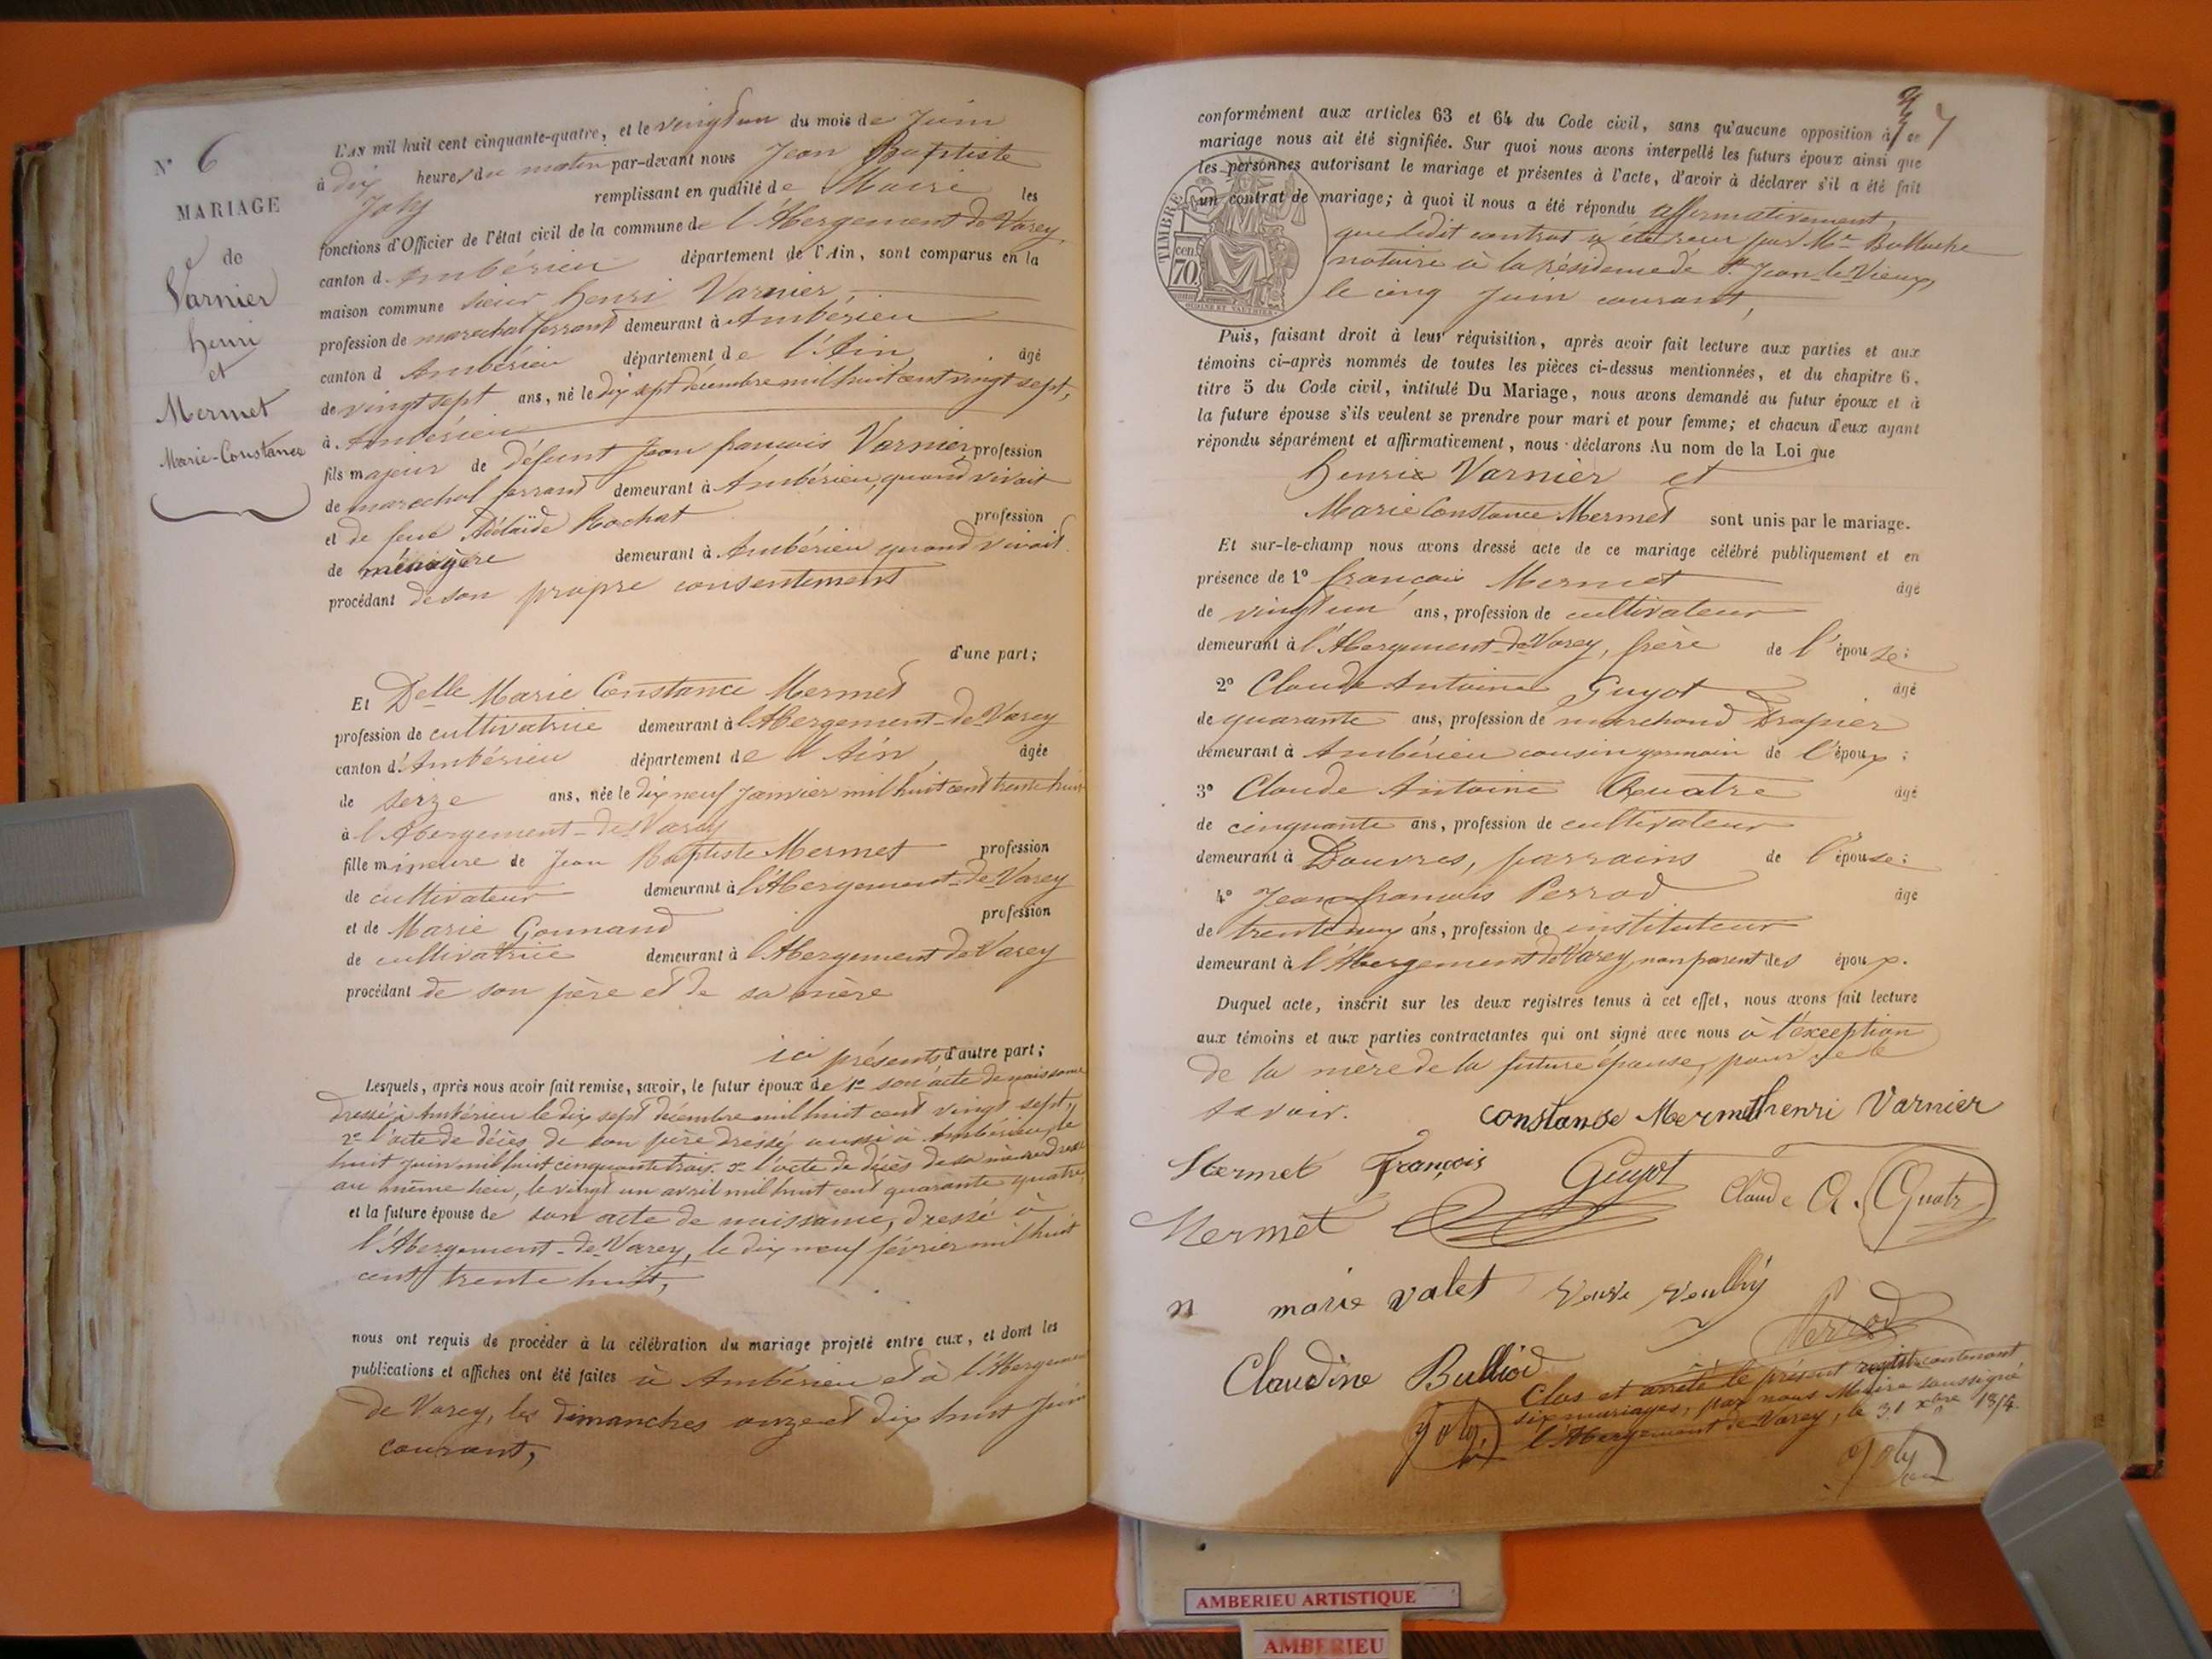 N° 6
MARIAGE
de
Varnier
henri
et
Mermet
Marie-Constance
L'AN mil huit cent cinquante-quatre, et le vingt un du mois de Juin
à dix heures du matin par-devant nous Jean Baptiste
Joly remplissant en qualité de Maire les
fonctions d'Officier de l'état civil de la commune de l'Abergement de Varey,
canton d'Ambérieu département de l'Ain, sont comparus en la
maison commune sieur henri Varnier
profession de marechal ferrant demeurant à Ambérieu
canton d Ambérieu département de l'Ain, âgé
de vingt sept ans, né le dix sept décembre mil huit cent vingt sept,
à Ambérieu
fils majeur de défunt Jean francois Varnier profession
de marechal ferrant demeurant à Ambérieu, quand vivait
et de feue Adélaïde Rochat profession
de ménagère demeurant à Ambérieu quand vivait
procédant de son propre consentement
d'une part;
Et Delle Marie Constance Mermet
profession de cultivatrice demeurant à l'Abergement-de-Varey
canton d'Ambérieu département de l'Ain, âgée
de seize ans, née le dix neuf janvier mil huit cent trente huit
à l'Abergement-de-Varey
fille mineure de Jean Baptiste Mermet profession
de cultivateur demeurant à l'Abergement-de-Varey
et de Marie Gonnand profession
de cultivatrice demeurant à l'Abergement de Varey
procédant de son père et de sa mère
ici présents d'autre part;
Lesquels, après nous avoir fait remise, savoir, le futur époux de 1° son acte de naissance
dressé à Ambérieu le dix sept décembre mil huit cent vingt sept,
2° l'acte de décès de son père dressé aussi à Ambérieu, le
huit juin mil huit cinquante trois. 3° l'acte de décès de sa mère dressé
au même lieu, le vingt un avril mil huit cent quarante quatre,
et la future épouse de son acte de naissance, dressé à
l'Abergement-de-Varey, le dix neuf février mil huit
cent trente huit,
nous ont requis de procéder à la célébration du mariage projeté entre eux, et dont les
publications et affiches ont été faites à Ambérieu et à l'Abergement
de Varey, les dimanches onze et dix huit Juin
courant,
7
conformément aux articles 63 et 64 du Code civil, sans qu'aucune opposition à ce
mariage nous ait été signifiée. Sur quoi nous avons interpellé les futurs époux ainsi que
les personnes autorisant le mariage et présentes à l'acte, d'avoir à déclarer s'il a été fait
un contrat de mariage; à quoi il nous a été répondu affirmativement,
que ledit contrat a été recu par Me
notaire à la résidence de St Jean-le-Vieux,
le cinq Juin courant,
TIMBRE
70 cen.
Puis, faisant droit à leur réquisition, après avoir fait lecture aux parties et aux
témoins ci-après nommés de toutes les pièces ci-dessus mentionnées, et du chapitre 6,
titre 5 du Code civil, intitulé Du Mariage, nous avons demandé au futur époux et à
la future épouse s'ils veulent se prendre pour mari et pour femme; et chacun d'eux ayant
répondu séparément et affirmativement, nous déclarons Au nom de la Loi que
henri Varnier et
Marie Constance Mermet sont unis par le mariage.
Et sur-le-champ nous avons dressé acte de ce mariage célébré publiquement et en
présence de 1° francois Mermet âgé
de vingt un ans, profession de cultivateur
demeurant à l'Abergement-de-Varey, frère de l'épouse;
2° Claude Antoine Guyot âgé
de quarante ans, profession de marchand Drapier
demeurant à Ambérieu cousin germain de l'époux;
3° Claude Antoine Quatre âgé
de cinquante ans, profession de cultivateur
demeurant à Douvres, parrains de l'épouse;
4° Jean francois Perrod âgé
de trente deux ans, profession de instituteur
demeurant à l'Abergement de Varey, non parent des époux.
Duquel acte, inscrit sur les deux registres tenus à cet effet, nous avons fait lecture
aux témoins et aux parties contractantes qui ont signé avec nous à l'exception
de la mère de la future épouse, pour ne le
savoir.
constanse Mermet henri Varnier
Mermet François Guyot Claude A. Quatr
Mermet
n marie valet veuve
Perrod
Claudine Bulliod
Clos et arrêté le présent registre contenant
six mariages, par nous Maire soussigné
l'Abergement de Varey, le 31 xbre 1854.
Joly
Joly
AMBERIEU ARTISTIQUE
AMBERIEU